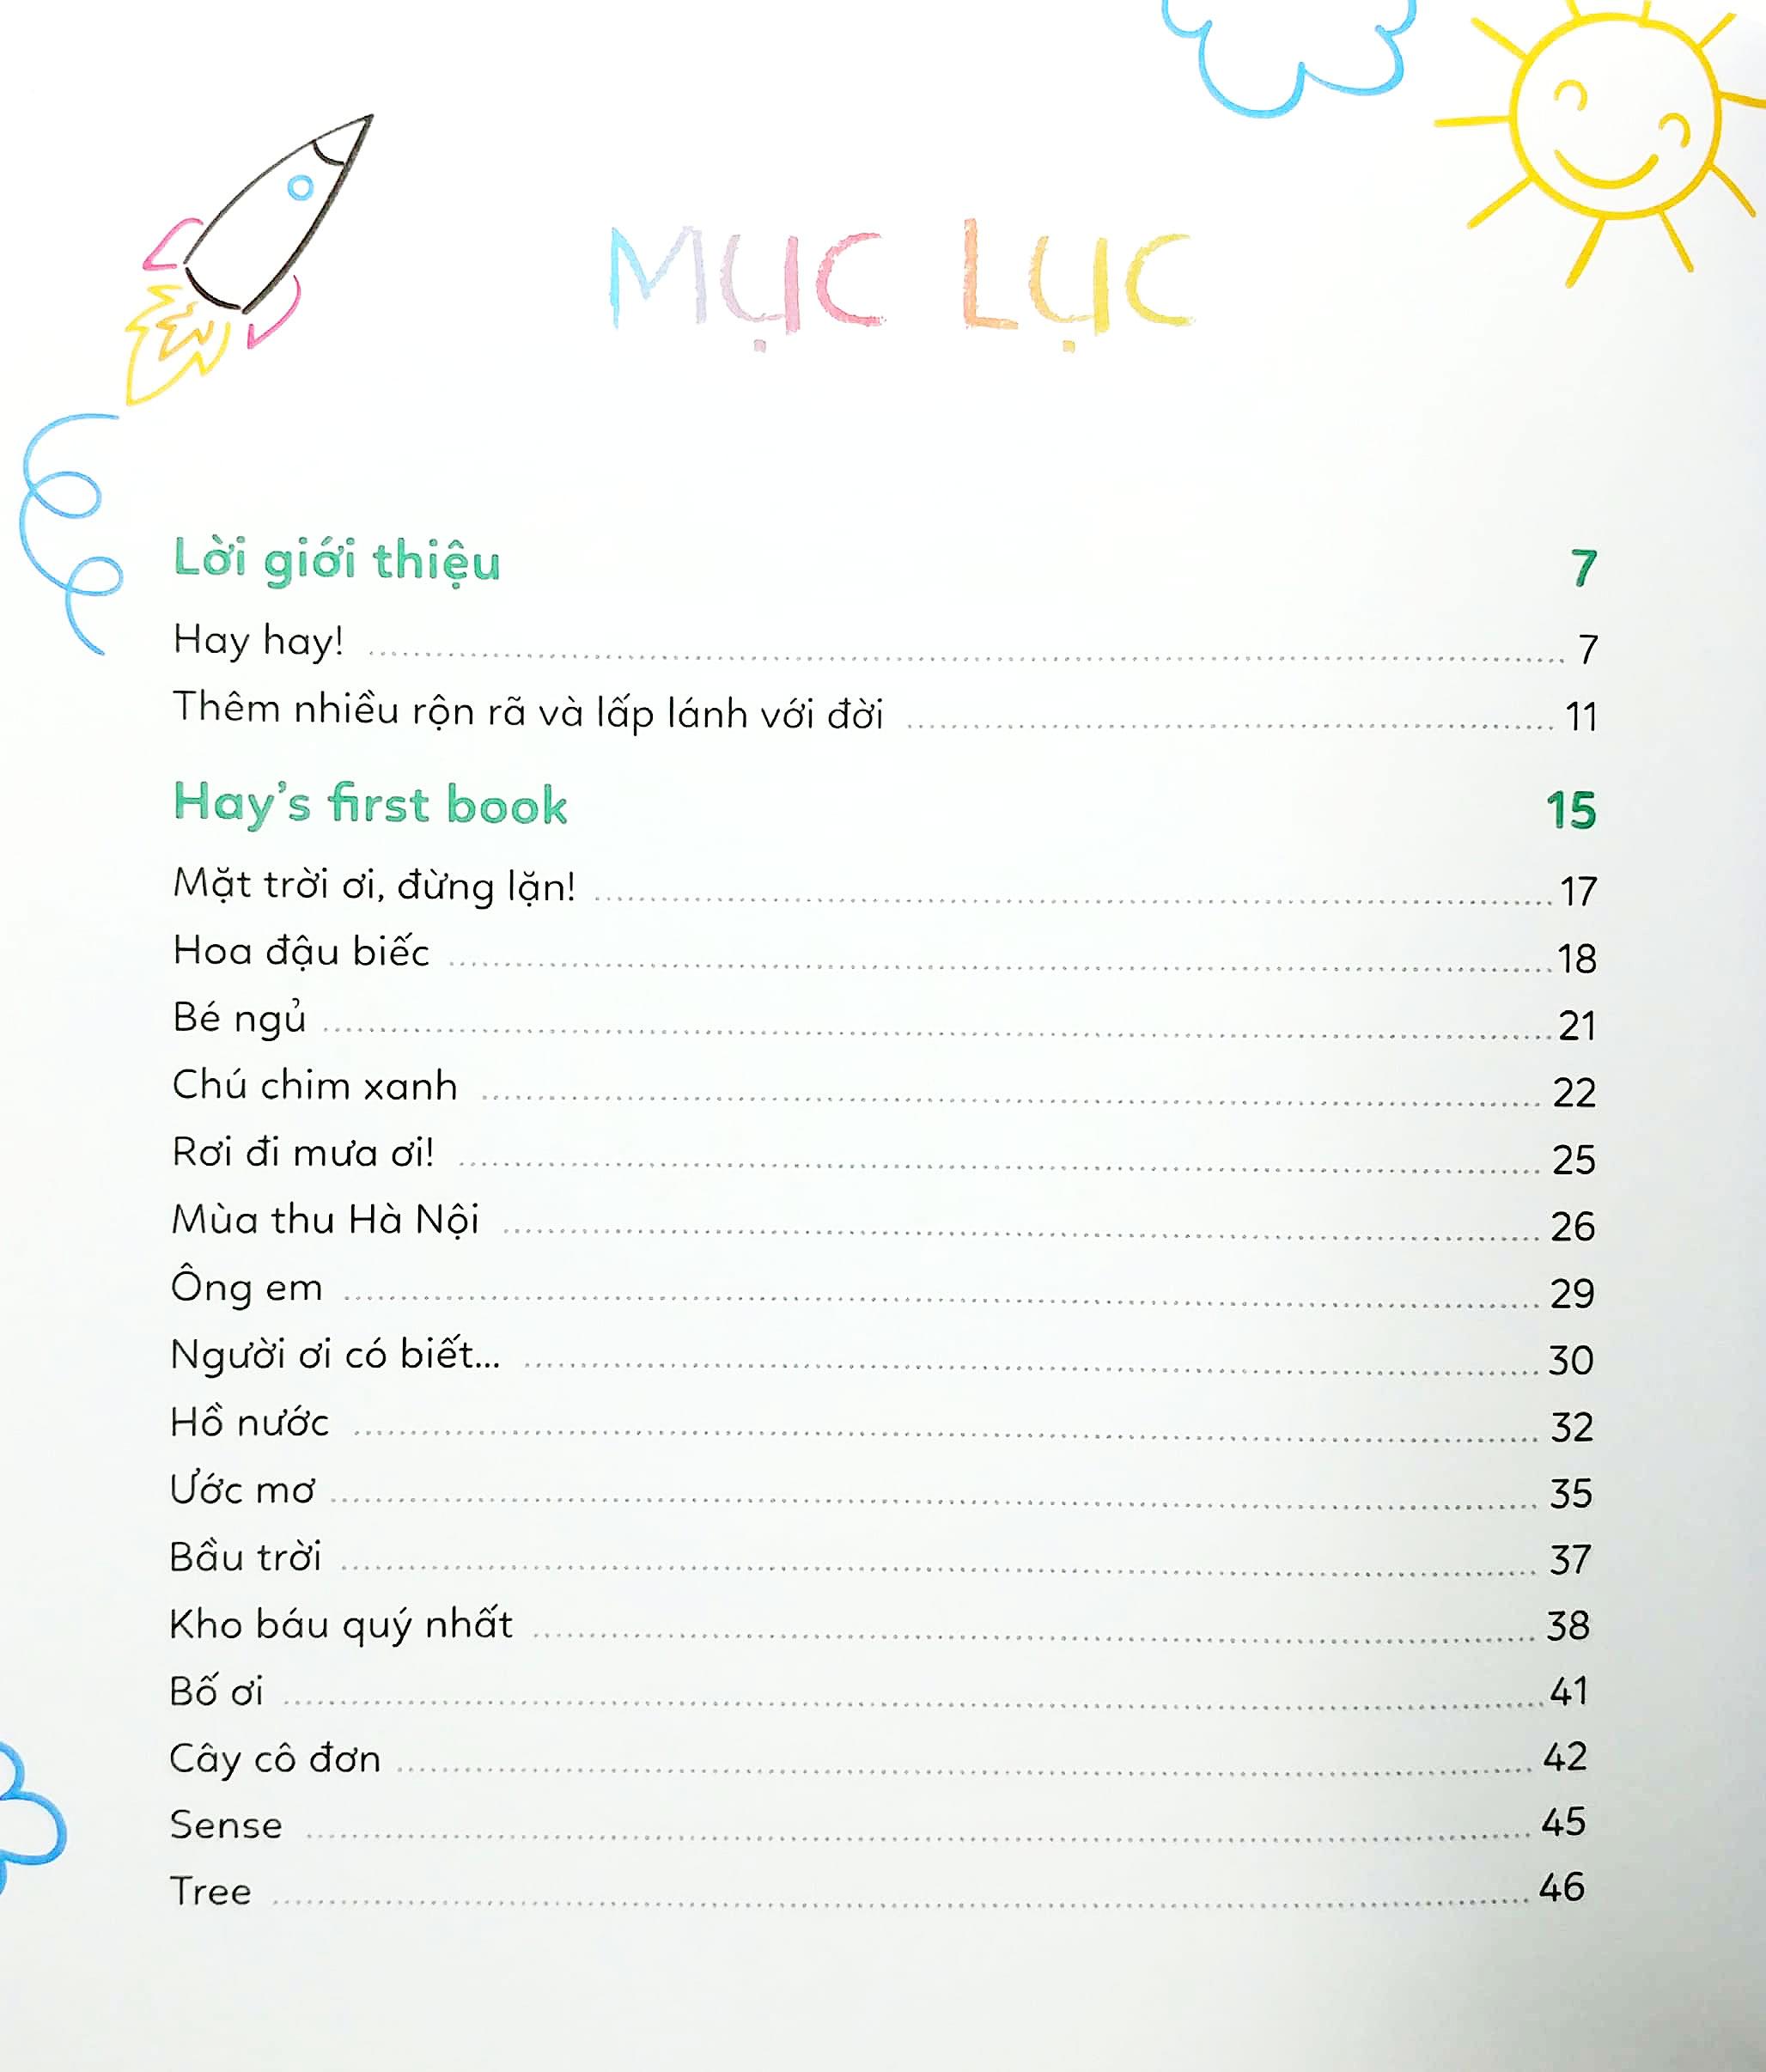 Mục Lục
Lời giới thiệu 7
Hay hay! 7
Thêm nhiều rộn rã và lấp lánh với đời 11
Hay’s first book 15
Mặt trời ơi, đừng lặn! 17
Hoa đậu biếc 18
Bé ngủ 21
Chú chim xanh 22
Rơi đi mưa ơi! 25
Mùa thu Hà Nội 26
Ông em 29
Người ơi có biết... 30
Hồ nước 32
Ước mơ 35
Bầu trời 37
Kho báu quý nhất 38
Bố ơi 41
Cây cô đơn 42
Sense 45
Tree 46